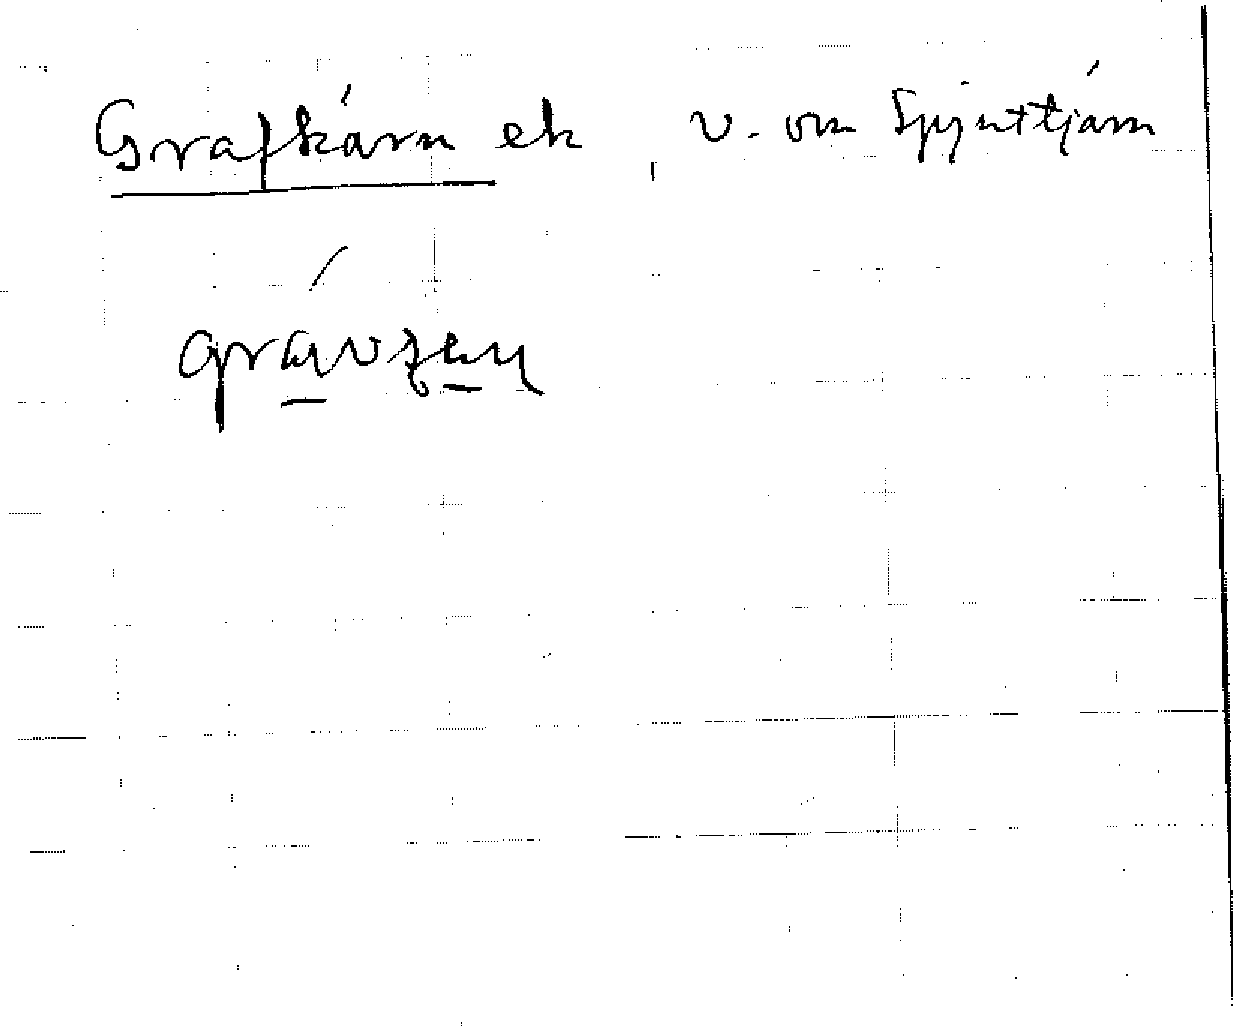 Grafkärn ek v. om Spjuttjärn
grávʒen